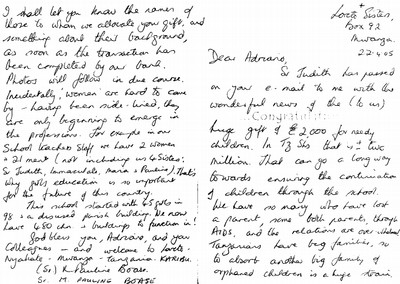 +
Loreto Sisters,
Box 92
Mwanza.
22.4.05
Dear Adriano,
Sr Judith has passed
on your e-mail to me with the
wonderful news of the (to us)
Congratul
huge gift of £2,000 for needy
children. In Tz Shs that is
million. That can go a long way
towards ensuring the continuation
of children through the school.
We have so many who have lost
a parent, some both parents, through
AIDS, and the relations are over
Tanzanians have big families, so
to absorb another big family, of
orphaned children is a huge strain.
I shall let you know the names of
those to whom we allocate your gift, and
something about their background,
as soon as the transaction has
been completed by our bank.
Photos will follow in due course.
Incidentally, women are hard to come
by - having been side-lined, they
are only beginning to emerge in
the profession. For example in our
School teacher staff we have 2 women
+ 21 men (not including us 4 Sisters:
Sr Judith, Immaculate, Maria & Pauline). That's
why girls education is so important
for the future of this country.
This school started with 45 girls in
98 in a disused parish building. We now
have 680 chn & buildings to function in!
God bless you, Adriano, and your
Colleagues - and welcome to Loreto -
Nyahale - Mwanza - Tanzania. KARIBU.
(Sr) K Pauline Boase.
Sr. M. PAULINE BOASE